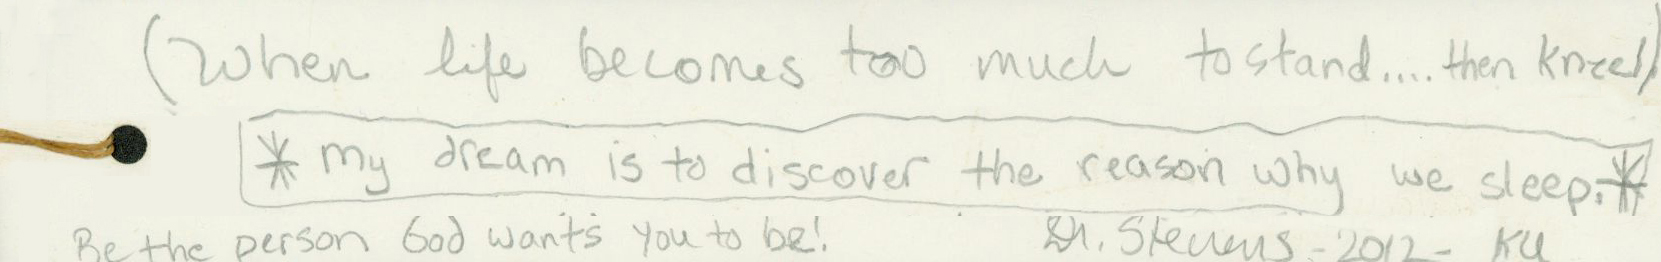 (When life becomes too much to stand.... then kneel)
* my dream is to discover the reason why we sleep. *
Be the person God wants you to be! Dr. Stevens - 2012 - KU